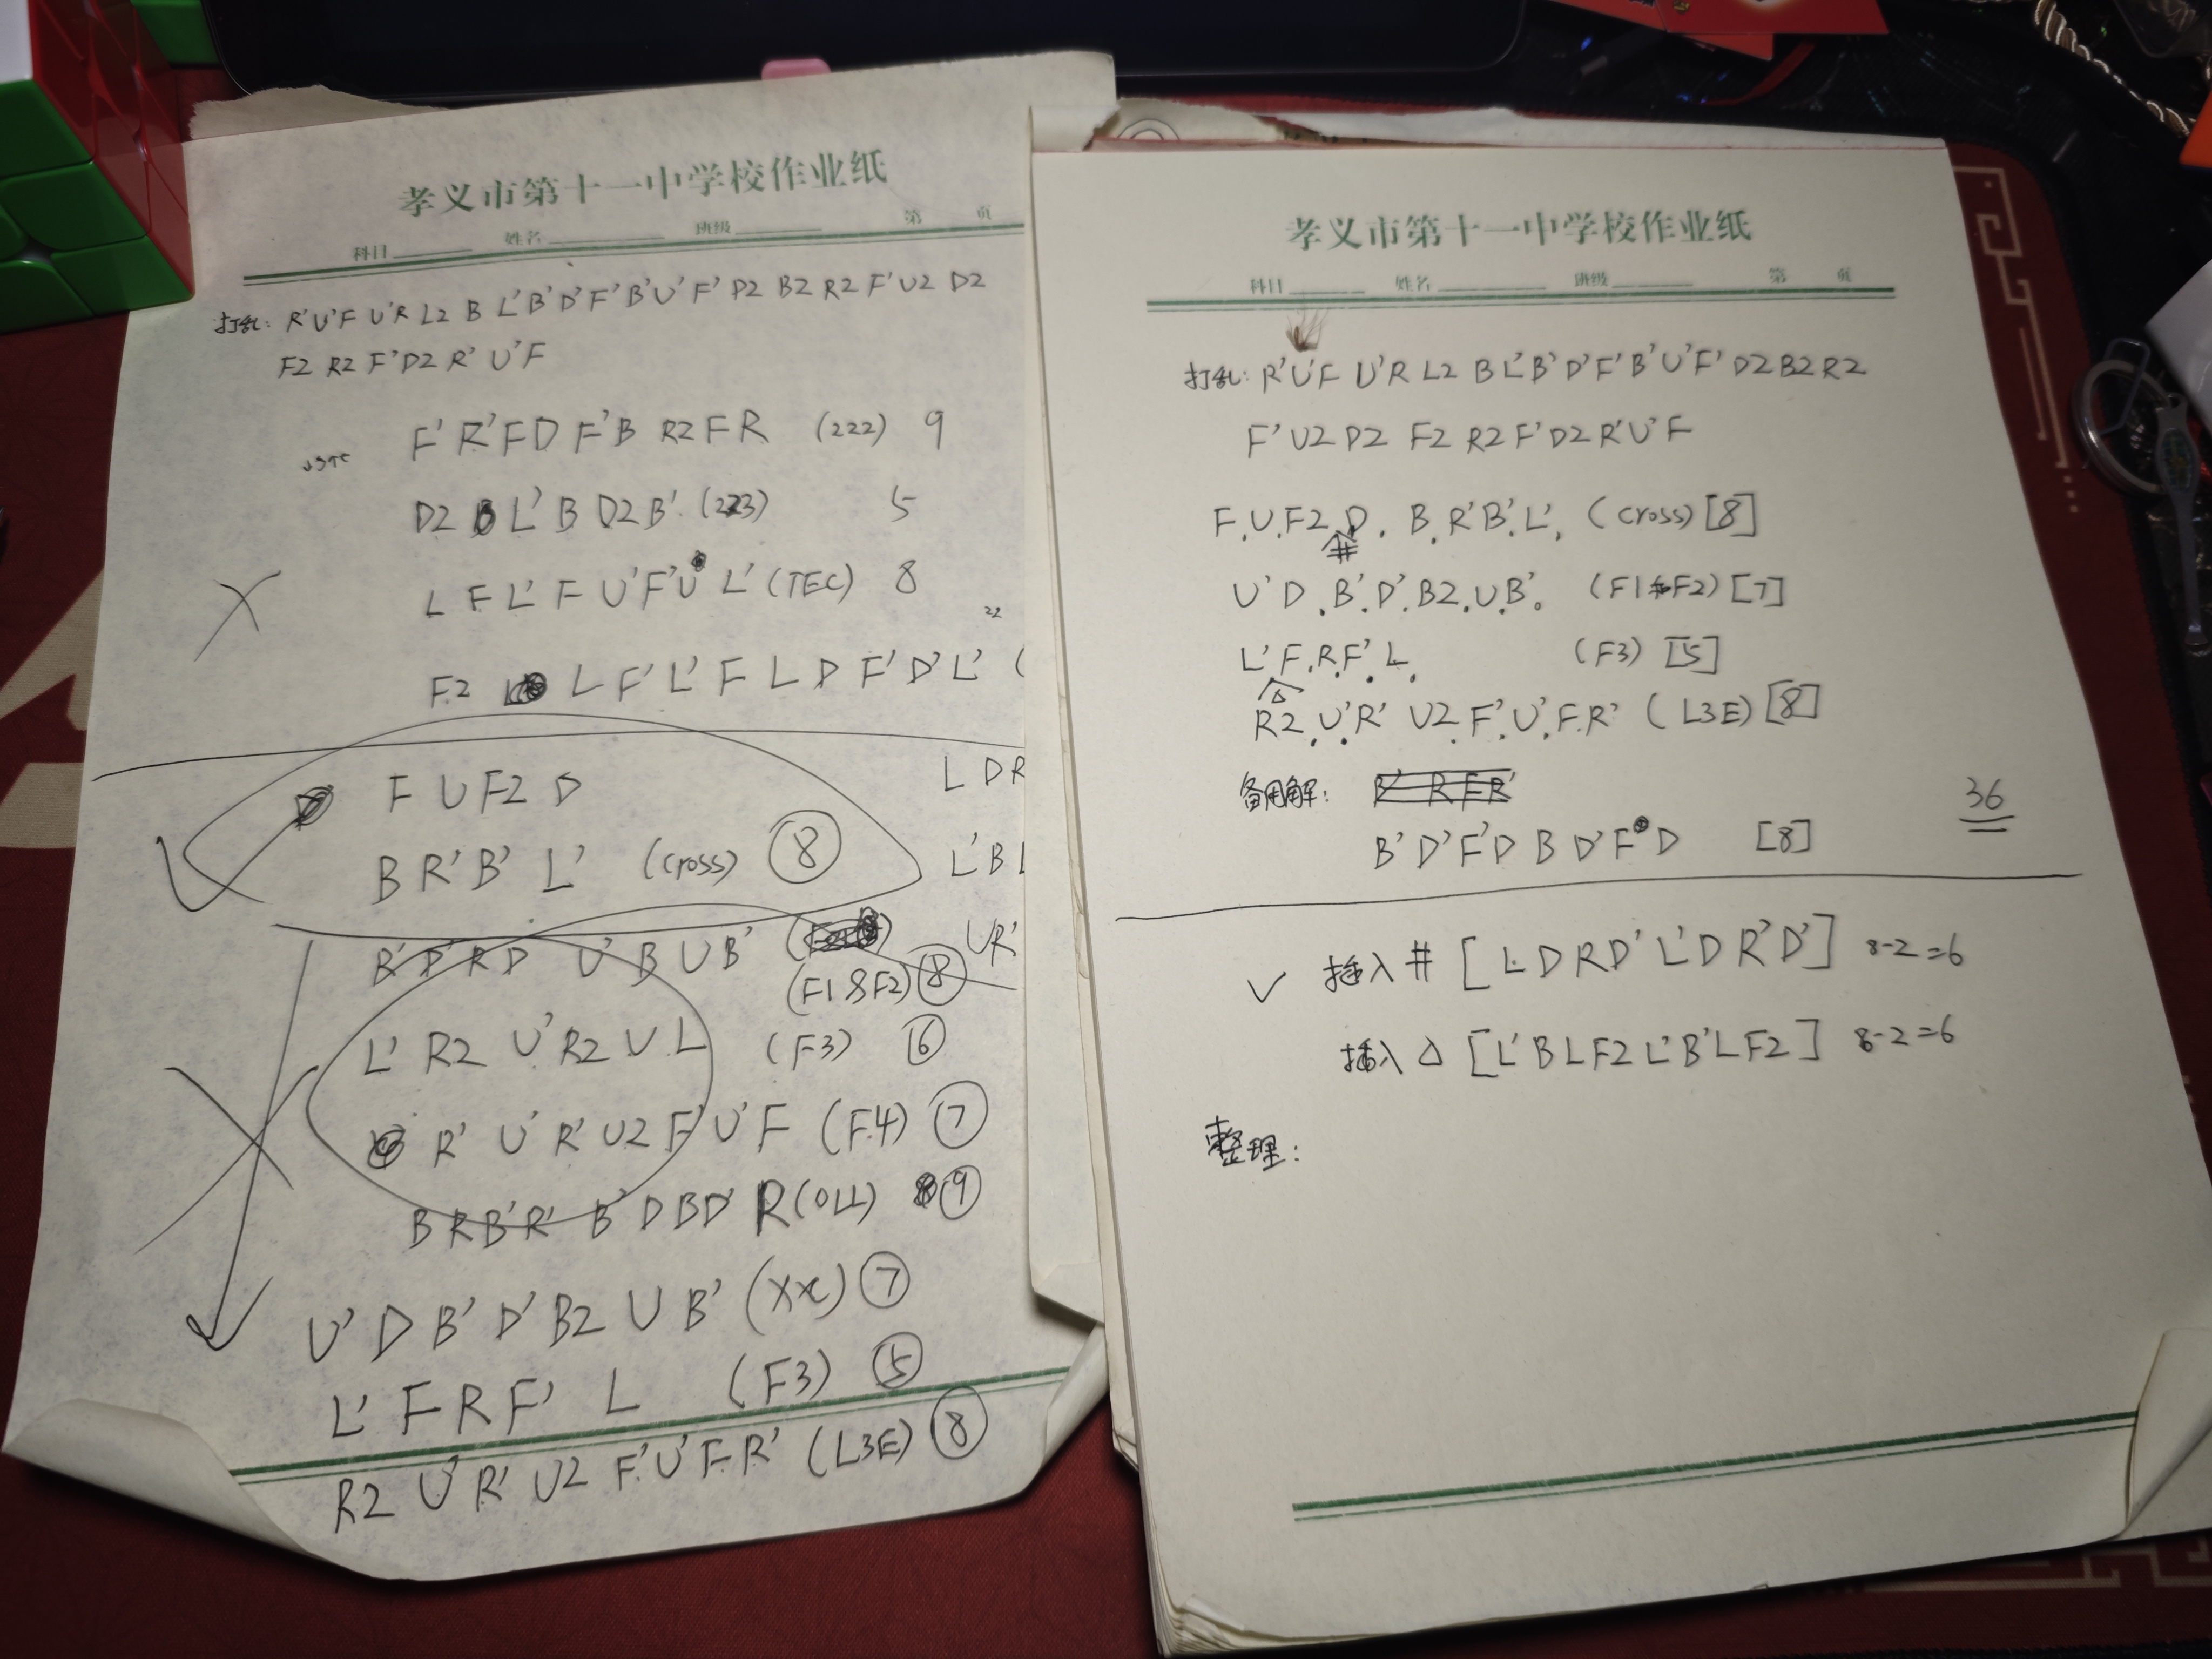 孝义市第十一中学校作业纸
科目 姓名 班级 第 页
打乱: R'U'F U'R L2 B L'B'D'F'B'U'F' D2 B2 R2 F'U2 D2
F2 R2 F'D2 R' U'F
F' R'F D F'B R2 F R (222) 9
D2 L' B D2 B' (223) 5
L F L' F U'F'U L' (TEC) 8
22
F2 L F' L' F L D F' D' L' (
F U F2 D
L D R
B R' B' L' (cross) 8
L'B L
B' D' R D U' B U B'
UR'
(F1&F2) 8
L' R2 U' R2 U L (F3) 6
R' U' R' U2 F' U' F (F4) 7
B R B'R' B' D B D' R (OLL) 9
U' D B' D' B2 U B' (xx) 7
L' F R F' L (F3) 5
R2 U' R' U2 F'U'F R' (L3E) 8
孝义市第十一中学校作业纸
科目 姓名 班级 第 页
打乱: R'U'F U'R L2 B L'B' D'F' B' U' F' D2 B2 R2
F' U2 D2 F2 R2 F' D2 R'U'F
F.U.F2.D. B.R'B'.L'. (cross) [8]
#
U' D.B'.D'.B2.U.B'. (F1&F2) [7]
L' F.R.F'.L. (F3) [5]
△
R2.U'.R' U2.F'.U'.F.R' (L3E) [8]
备用解: B' R F R'
36
B' D' F' D B D' F D [8]
✓ 插入 # [L D R D' L' D R' D'] 8-2=6
插入 △ [L' B L F2 L' B' L F2] 8-2=6
整理: